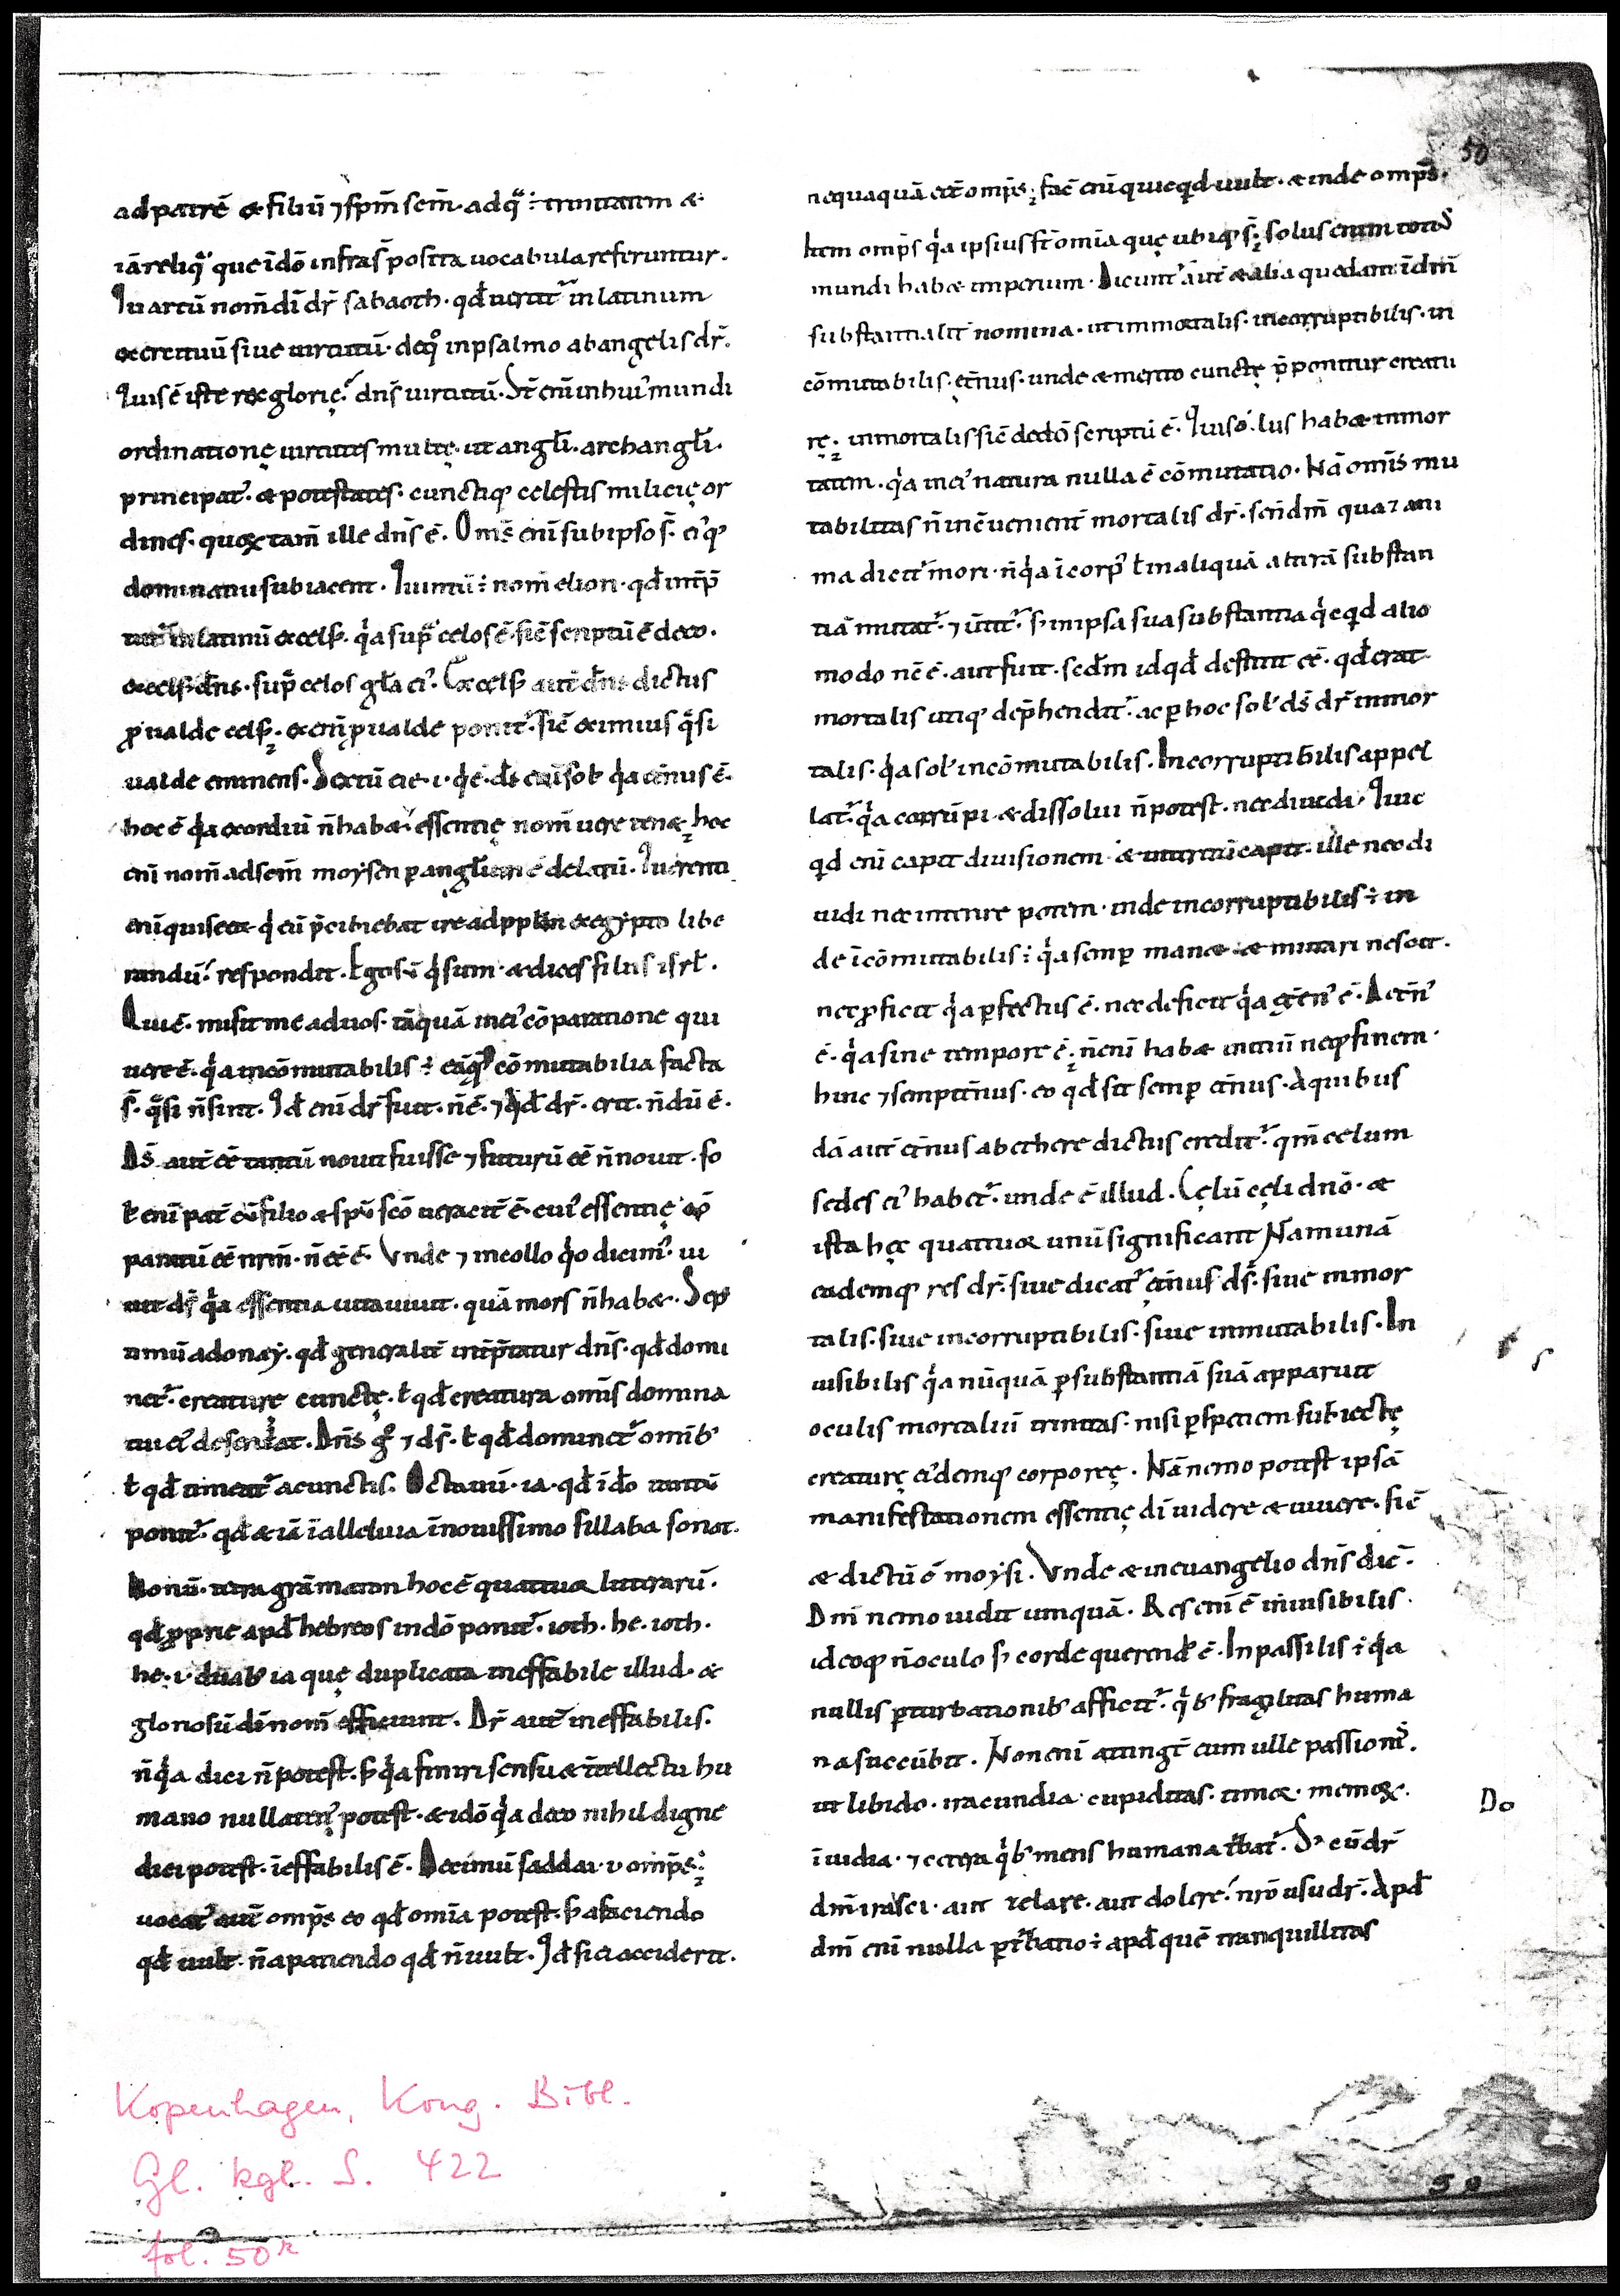 50
ad patrē & filiū ⁊ sp̄m sc̄m. ad q̄ ÷ trinitatem &
iā reliq̄ que ī dō infra s̄ posita uocabula referuntur.
Quartū nom̄ dī dr̄ sabaoth. qd̄ uertit᷑ in latinum
exercituū siue uirtutū. de qͦ in psalmo ab angelis dr̄.
Quis ē iste rex glorię? dn̄s uirtutū. St̄ eni in hui᷒ mundi
ordinationę uirtutes multę. ut angl̄i. archangl̄i.
principat᷒. & potestates. cunctiq; celestis milicię or
dines. quoꝝ tam̄ ille dn̄s ē. Om̄s eni sub ipso s̄. ei᷒q;
dominatui subiacent. Quintū ÷ nom̄ elion. qd̄ int̄p̄
tat᷑ in latinū excels᷒. qͥa sup̄ celos ē. sic̄ scriptū ē de eo.
excels᷒ dn̄s. sup̄ celos gl̄a ei᷒. Excels᷒ aut̄ dn̄s dictus
ꝓ ualde cels᷒. ex eni ꝓ ualde ponit᷑. sic̄ eximius qͣsi
ualde eminens. Sextū eie. i. qͥ ē. ds̄ eni sol᷒ qͥa et̄nus ē.
hoc ē qͥa exordiū n̄ habæ essentię nom̄ uere tenæ. hoc
eni nom̄ ad sc̄m moysen ꝑ angl̄um ē delatū. Querenti
eni quis e&̄ qͥ eū p̄cipiebat ire ad ppl̄m ex egypto libe
randū. respondit. Ego sū qͥ sum. & dices filiis isrl̄.
Qui ē. misit me ad uos. tāquā in ei᷒ cōparatione qui
uere ē. qͥa incōmutabilis ÷ ea q̄ cōmutabilia facta
s̄. qͣsi n̄ sint. Id̄ eni dr̄ fuit. n̄ ē. ⁊ qd̄ dr̄. erit. n̄dū ē.
Ds̄ aut̄ eē tantū nouit fuisse ⁊ futurū eē n̄ nouit. so
l᷒ eni pat̄ cū filio & spū sc̄o ueracit̄ ē. cui᷒ essentię cō
paratū eē nr̄m. n̄ eē ē. Vnde ⁊ in colloqͥo dicim᷒. ui
uit ds̄ qͥa essentia uita uiuit. quā mors n̄ habæ. Sep
timū adonay. qd̄ generalit̄ int̄p̄tatur dn̄s. qd̄ domi
net᷑ creaturę cunctę. ł qd̄ creatura omīs domina
tui ei᷒ deseruiat. Dn̄s gͦ ⁊ ds̄. ł qd̄ dominet᷑ omib᷒
ł qd̄ timeat᷑ a cunctis. Octauū. ia. qd̄ ī dō tantū
ponit᷑. qd̄ & iā ī alleluia ī nouissimo sillaba sonat.
Nonū. tetra grāmaton hoc ē quattuor litterarū.
qd̄ ꝓprie apd̄ hebreos in dō ponit᷑. ioth. he. ioth.
he. i. duab᷒ ia quę duplicata ineffabile illud. &
gloriosū dī nom̄ efficiunt. Dr̄ aut̄ ineffabilis.
n̄ qͥa dici n̄ potest. s᷒ qͥa finiri sensu & ītellectu hu
mano nullaten᷒ potest. & idō qͥa de eo nihil digne
dici potest. ineffabilis ē. Decimū saddai. i. omp̄s.
uocat᷑ aut̄ omp̄s eo qd̄ omīa potest. s᷒ a faciendo
qd̄ uult. n̄ a patiendo qd̄ n̄ uult. Id̄ si ei accideret.
nequaquā eēt omp̄s. facē eni quicqd uult. & inde omp̄s.
Item omp̄s qͥa ipsius st̄ omīa quę ubiq; s̄. solus enim toti᷒
mundi habæ imperium. Dicunt᷑ aut̄ & alia quedam ī dm̄
substantialit̄ nomina. ut immortalis. incorruptibilis. in
cōmutabilis. et̄nus. unde & merito cunctę p̄ponitur creatu
rę. inmortalis sic̄ de dō scriptū ē. Qui solus habæ inmor
tatem. qͥa in ei᷒ natura nulla ē cōmutatio. Nā omīs mu
tabilitas n̄ incōuenient̄ mortalis dr̄. sc̄dm̄ quā ⁊ ani
ma dicit᷑ mori. n̄ qͥa ī corp᷒ ł in aliquā alterā substan
tiā mutat᷑. ⁊ ūtit᷑. s᷒ in ipsa sua substantia qͥcqd alio
modo nc̄ ē. aut fuit. sc̄dm id qd̄ destitit eē. qd̄ erat
mortalis utiq; dep̄hendit᷑. ac ꝑ hoc sol᷒ ds̄ dr̄ inmor
talis. qͥa sol᷒ incōmutabilis. Incorruptibilis appel
lat᷑. qͥa corrūpi & dissolui n̄ potest. nec diuidi. Quic
qd eni capit diuisionem. & interitū capit. ille nec di
uidi nec interire potest. inde incorruptibilis ÷ in
de īcōmutabilis ÷ qͥa semꝑ manæ & mutari nescit.
nec ꝓficit qͥa ꝑfectus ē. nec deficit qͥa et̄n᷒ ē. Aet̄n᷒
ē. qͥa sine tempore ē. n̄ eni habæ initiū neq; finem.
hinc ⁊ sempit̄nus. eo qd̄ sit semꝑ et̄nus. A quibus
dā aut̄ et̄nus ab ethere dictus credit᷑. qm̄ celum
sedes ei᷒ habet᷑. unde ē illud. Cęlū cęli dn̄o. &
ista hęc quattuor unū significant Nam unā
eademq; res dr̄. siue dicat᷑ et̄nus ds̄. siue inmor
talis. siue incorruptibilis. siue inmutabilis. In
uisibilis qͥa nūquā ꝑ substantiā suā apparuit
oculis mortaliū trinitas. nisi ꝑ speciem subiectę
creaturę ei᷒demq; corporeę. Nā nemo potest ipsā
manifestationem essentię dī uidere & uiuere. sic̄
& dictū ē moysi. Vnde & in euangelio dn̄s dic̄.
Dm̄ nemo uidit umquā. Res eni ē inuisibilis.
ideoq; n̄ oculo s᷒ corde querend᷒ ē. Inpassilis ÷ qͥa
nullis ꝑturbationib᷒ afficit᷑. qͥb᷒ fragilitas huma
na succūbit. Non eni attingt̄ eum ulle passiones.
ut libido. iracundia. cupiditas. timor. memor.
īuidia. ⁊ cetera qͥb᷒ mens humana t᷑bat᷑. S᷒ cū dr̄
dm̄ irasci. aut zelare. aut dolere. nr̄o usu dr̄. Apd̄
dm̄ eni nulla ꝑt᷑batio ÷ apd̄ quē tranquillitas
Do
Kopenhagen, Kong. Bibl.
Gl. kgl. S. 422
fol. 50r
50